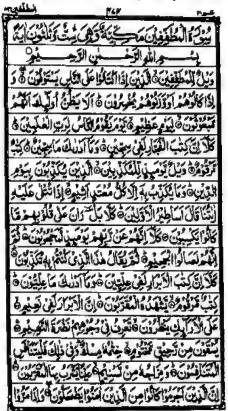 سُوْرَةُ الْمُطَفِّفِيْنَ مَكِّيَّةٌ وَّهِيَ سِتٌّ وَّثَلٰثُوْنَ اٰيَةً
بِسْمِ اللّٰهِ الرَّحْمٰنِ الرَّحِيْمِ
وَيْلٌ لِّلْمُطَفِّفِيْنَ الَّذِيْنَ اِذَا اكْتَالُوْا عَلَى النَّاسِ يَسْتَوْفُوْنَ وَ
اِذَا كَالُوْهُمْ اَوْ وَّزَنُوْهُمْ يُخْسِرُوْنَ اَلَا يَظُنُّ اُولٰٓئِكَ اَنَّهُمْ
مَّبْعُوْثُوْنَ لِيَوْمٍ عَظِيْمٍ يَّوْمَ يَقُوْمُ النَّاسُ لِرَبِّ الْعٰلَمِيْنَ
كَلَّآ اِنَّ كِتٰبَ الْفُجَّارِ لَفِيْ سِجِّيْنٍ وَمَآ اَدْرٰىكَ مَا سِجِّيْنٌ كِتٰبٌ
مَّرْقُوْمٌ وَيْلٌ يَّوْمَئِذٍ لِّلْمُكَذِّبِيْنَ الَّذِيْنَ يُكَذِّبُوْنَ بِيَوْمِ
الدِّيْنِ وَمَا يُكَذِّبُ بِهٖٓ اِلَّا كُلُّ مُعْتَدٍ اَثِيْمٍ اِذَا تُتْلٰى عَلَيْهِ
اٰيٰتُنَا قَالَ اَسَاطِيْرُ الْاَوَّلِيْنَ كَلَّا بَلْ رَانَ عَلٰى قُلُوْبِهِمْ مَّا
كَانُوْا يَكْسِبُوْنَ كَلَّآ اِنَّهُمْ عَنْ رَّبِّهِمْ يَوْمَئِذٍ لَّمَحْجُوْبُوْنَ ثُمَّ
اِنَّهُمْ لَصَالُوا الْجَحِيْمِ ثُمَّ يُقَالُ هٰذَا الَّذِيْ كُنْتُمْ بِهٖ تُكَذِّبُوْنَ
كَلَّآ اِنَّ كِتٰبَ الْاَبْرَارِ لَفِيْ عِلِّيِّيْنَ وَمَآ اَدْرٰىكَ مَا عِلِّيُّوْنَ
كِتٰبٌ مَّرْقُوْمٌ يَّشْهَدُهُ الْمُقَرَّبُوْنَ اِنَّ الْاَبْرَارَ لَفِيْ نَعِيْمٍ
عَلَى الْاَرَآئِكِ يَنْظُرُوْنَ تَعْرِفُ فِيْ وُجُوْهِهِمْ نَضْرَةَ النَّعِيْمِ
يُسْقَوْنَ مِنْ رَّحِيْقٍ مَّخْتُوْمٍ خِتٰمُهٗ مِسْكٌ وَفِيْ ذٰلِكَ فَلْيَتَنَافَسِ
الْمُتَنَافِسُوْنَ وَمِزَاجُهٗ مِنْ تَسْنِيْمٍ عَيْنًا يَّشْرَبُ بِهَا الْمُقَرَّبُوْنَ
اِنَّ الَّذِيْنَ اَجْرَمُوْا كَانُوْا مِنَ الَّذِيْنَ اٰمَنُوْا يَضْحَكُوْنَ وَاِذَا مَرُّوْا